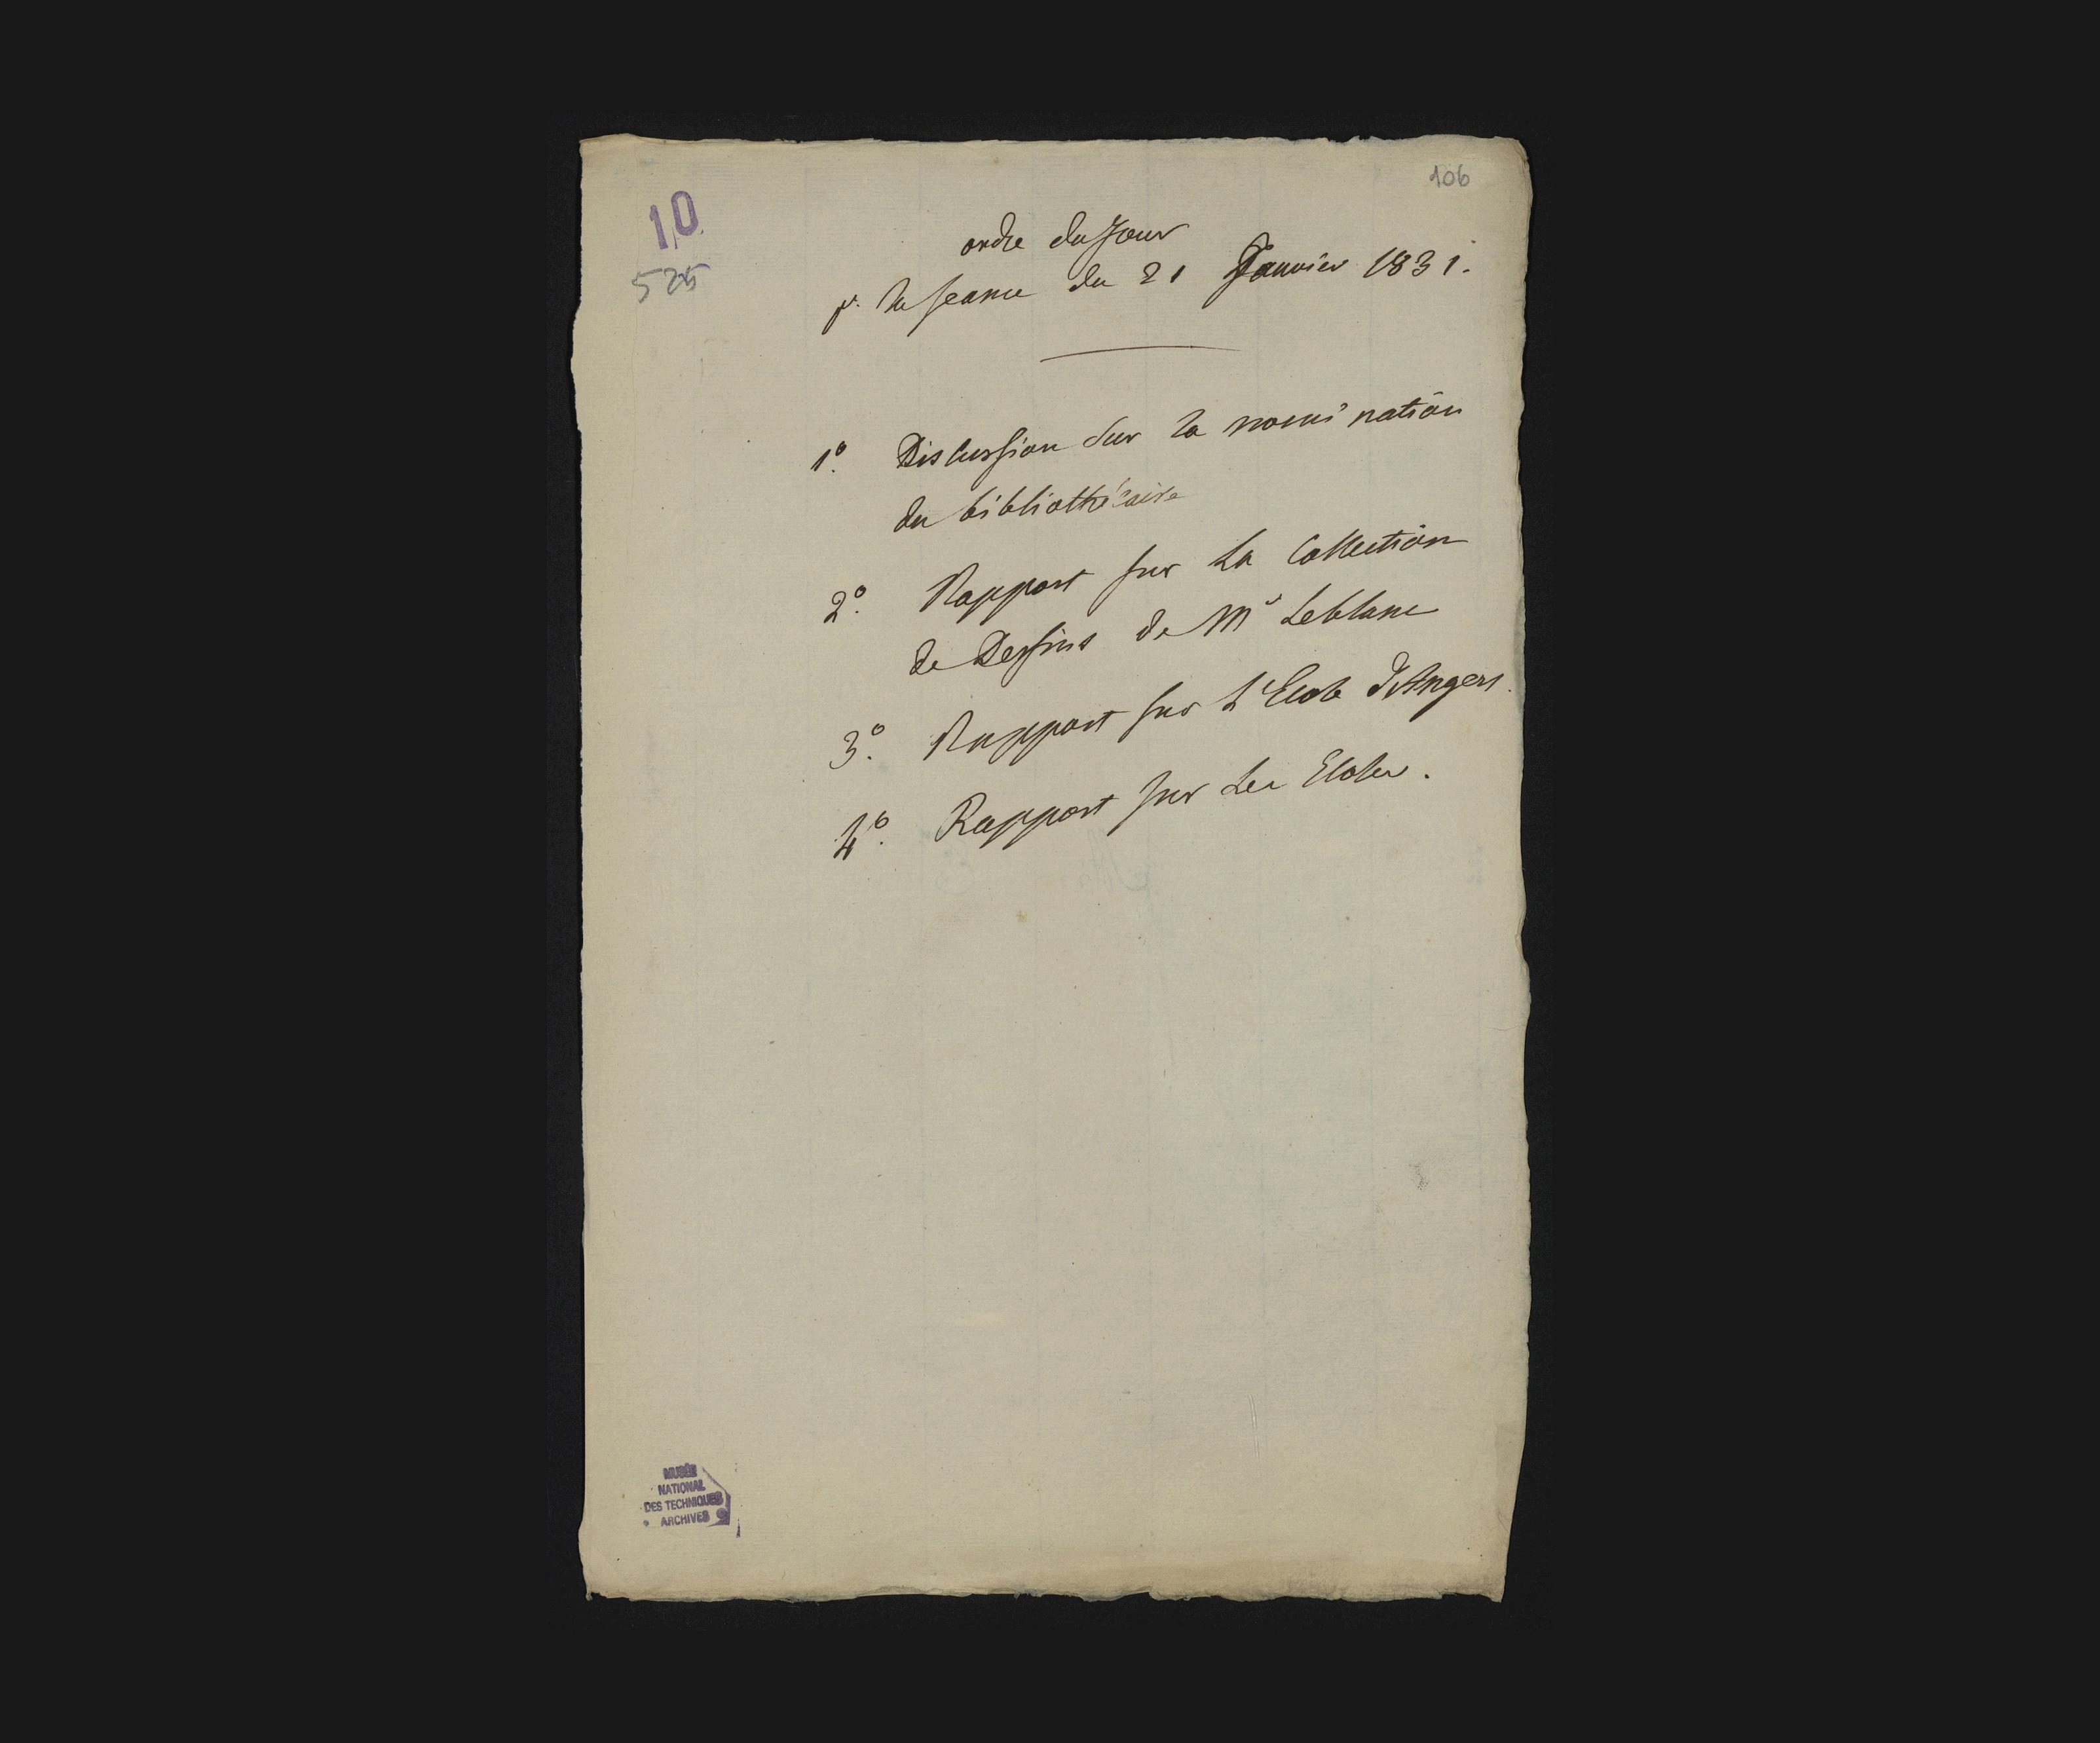 106
10
525
ordre du Jour
pr. la seance du 21 Janvier 1831.
1º. Discussion sur la nomination
du bibliothécaire
2º. Rapport sur la Collection
de Dessins de Mr Leblanc
3º. Rapport sur l'Ecole d'Angers.
4º. Rapport sur les Ecoles.
MUSÉE
NATIONAL
DES TECHNIQUES
ARCHIVES